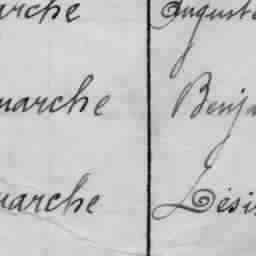 arche August
marche Benja
marche Dési